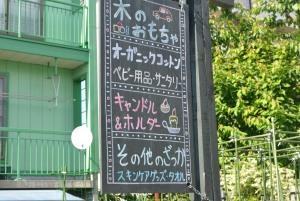 木の
おもちゃ
オーガニックコットン
ベビー用品・サニタリー
キャンドル
&ホルダー
その他のざっか
スキンケアグッズ・タオル